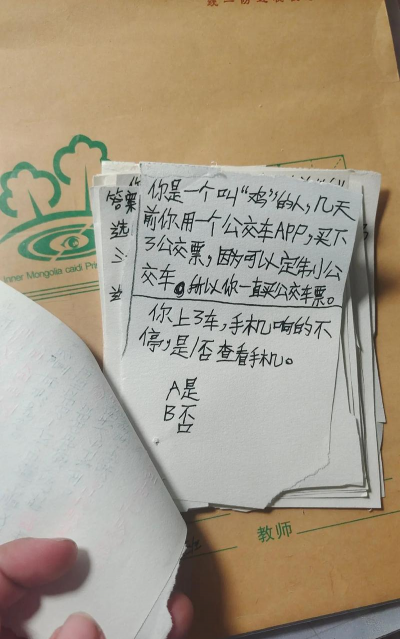 你是一个叫“鸡”的人，几天
前你用一个公交车APP，买下
了公交票，因为可以定制小公
交车。所以你一直买公交车票。
你上了车，手机响的不
停，是/否查看手机。
A是
B否
答案
选
Inner Mongolia caidi Pri
教师